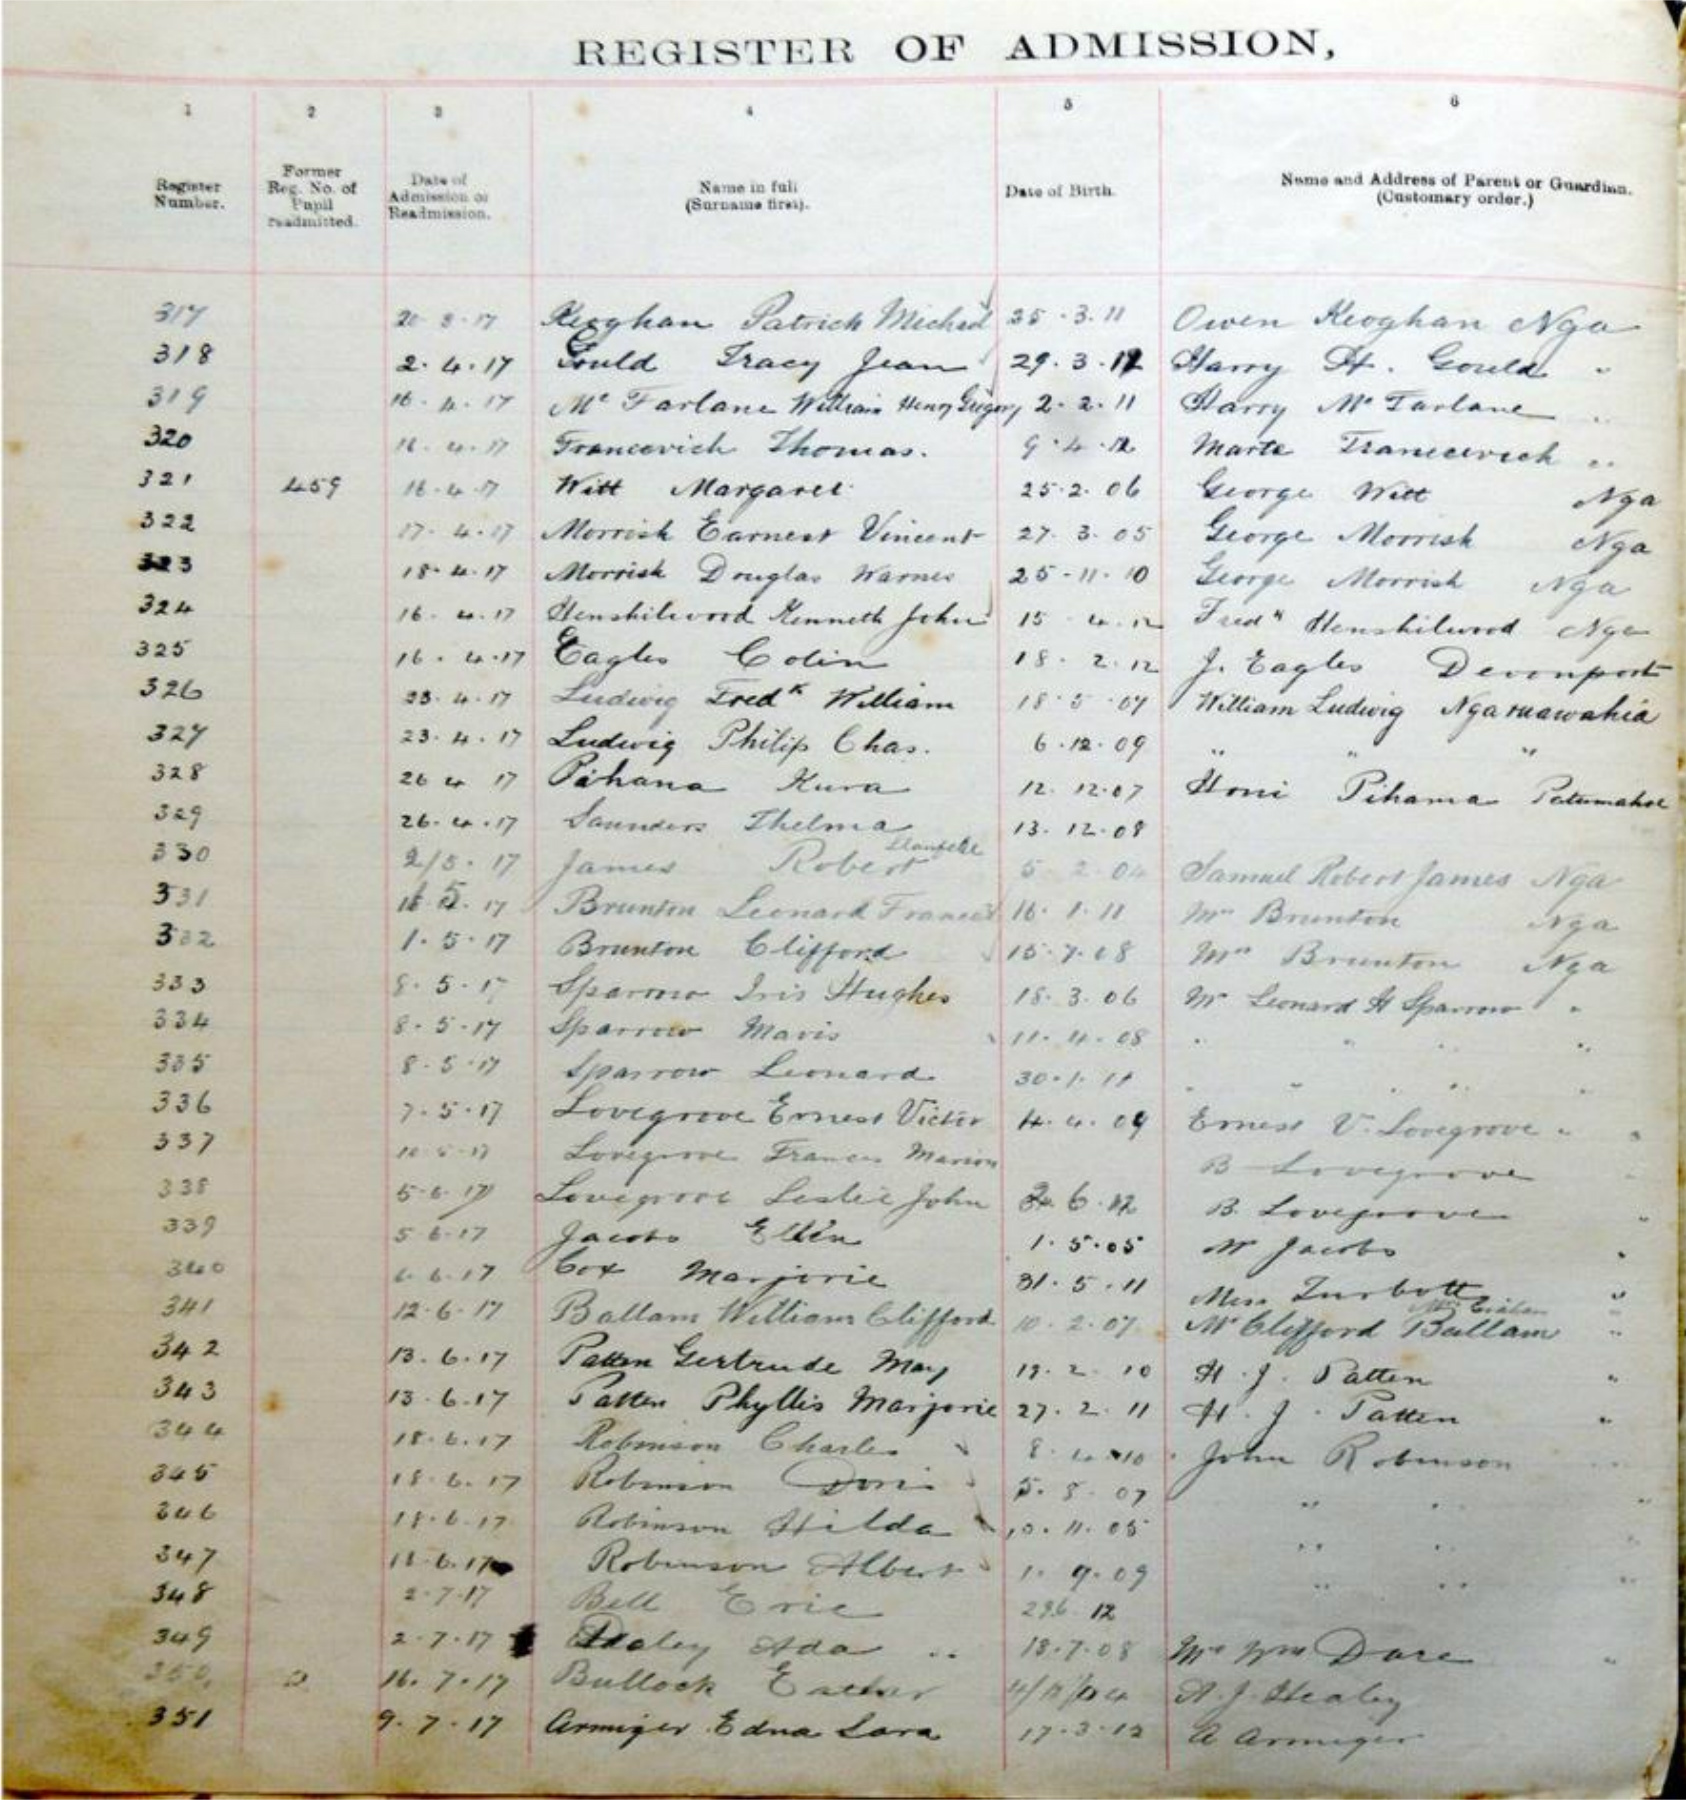 REGISTER OF ADMISSION,
1 2 3 4 5 6
Register Number. Former Reg. No. of Pupil readmitted. Date of Admission or Readmission. Name in full (Surname first). Date of Birth. Name and Address of Parent or Guardian. (Customary order.)
317 20 3 17 Keoghan Patrick Michael 25.3.11 Owen Keoghan Nga
318 2.4.17 Gould Tracy Jean 29.3.12 Harry H. Gould "
319 16.4.17 Mc Farlane William Henry Gregory 2.2.11 Harry Mc Farlane "
320 16.4.17 Francevich Thomas. 9.4.12 Marte Francevich "
321 459 16.4.17 Witt Margaret 25.2.06 George Witt Nga
322 17.4.17 Morrish Earnest Vincent 27.3.05 George Morrish Nga
323 18.4.17 Morrish Douglas Warnes 25-11-10 George Morrish Nga
324 16.4.17 Henshilwood Kenneth John 15 4.12 Fredk Henshilwood Nga
325 16.4.17 Eagles Colin 18.2.12 J. Eagles Devonport
326 23.4.17 Ludwig Fredk William 18.5.07 William Ludwig Ngaruawahia
327 23.4.17 Ludwig Philip Chas. 6.12.09 " " "
328 26 4 17 Pihana Kura 12.12.07 Honi Pihama Patumahoe
329 26.4.17 Saunders Thelma 13.12.08
330 2/5.17 James Robert 5 2 04 Samuel Robert James Nga
331 5.17 Brunton Leonard Francis 16.1.11 Mr Brunton Nga
332 1.5.17 Brunton Clifford 15.7.08 Mrs Brunton Nga
333 8.5.17 Sparrow Iris Hughes 18.3.06 Mr Leonard H Sparrow "
334 8.5.17 Sparrow Mavis 11.4.08 " " " "
335 8.5.17 Sparrow Leonard 30.1.11 " " " " "
336 7.5.17 Lovegrove Ernest Victor 4.4.09 Ernest V. Lovegrove " "
337 Lovegrove Frances Marion B Lovegrove
338 5.6.17 Lovegrove Leslie John 6.12 B. Lovegrove "
339 5 6.17 Jacobs Ellen 1.5.05 Mr Jacobs "
340 6.6.17 Cox Marjorie 31.5.11 Miss Turbott "
341 12.6.17 Ballam William Clifford 10.2.07 Mr Clifford Ballam "
342 13.6.17 Patten Gertrude May 19.2.10 H.J. Patten "
343 13.6.17 Patten Phyllis Marjorie 27.2.11 H.J. Patten "
344 18.6.17 Robinson Charles 8.4.10 John Robinson "
345 18.6.17 Robinson Doris 5.8.07 " " "
346 18.6.17 Robinson Hilda 10.11.05 " "
347 18.6.17 Robinson Albert 1.9.09 " " "
348 2.7.17 Bell Eric 29.6.12
349 2.7.17 Ada 18.7.08 Mr Wm Dare "
350 16.7.17 Bullock Esther A.J. Healey
351 9.7.17 Armiger Edna Lara 17.3.12 A Armiger